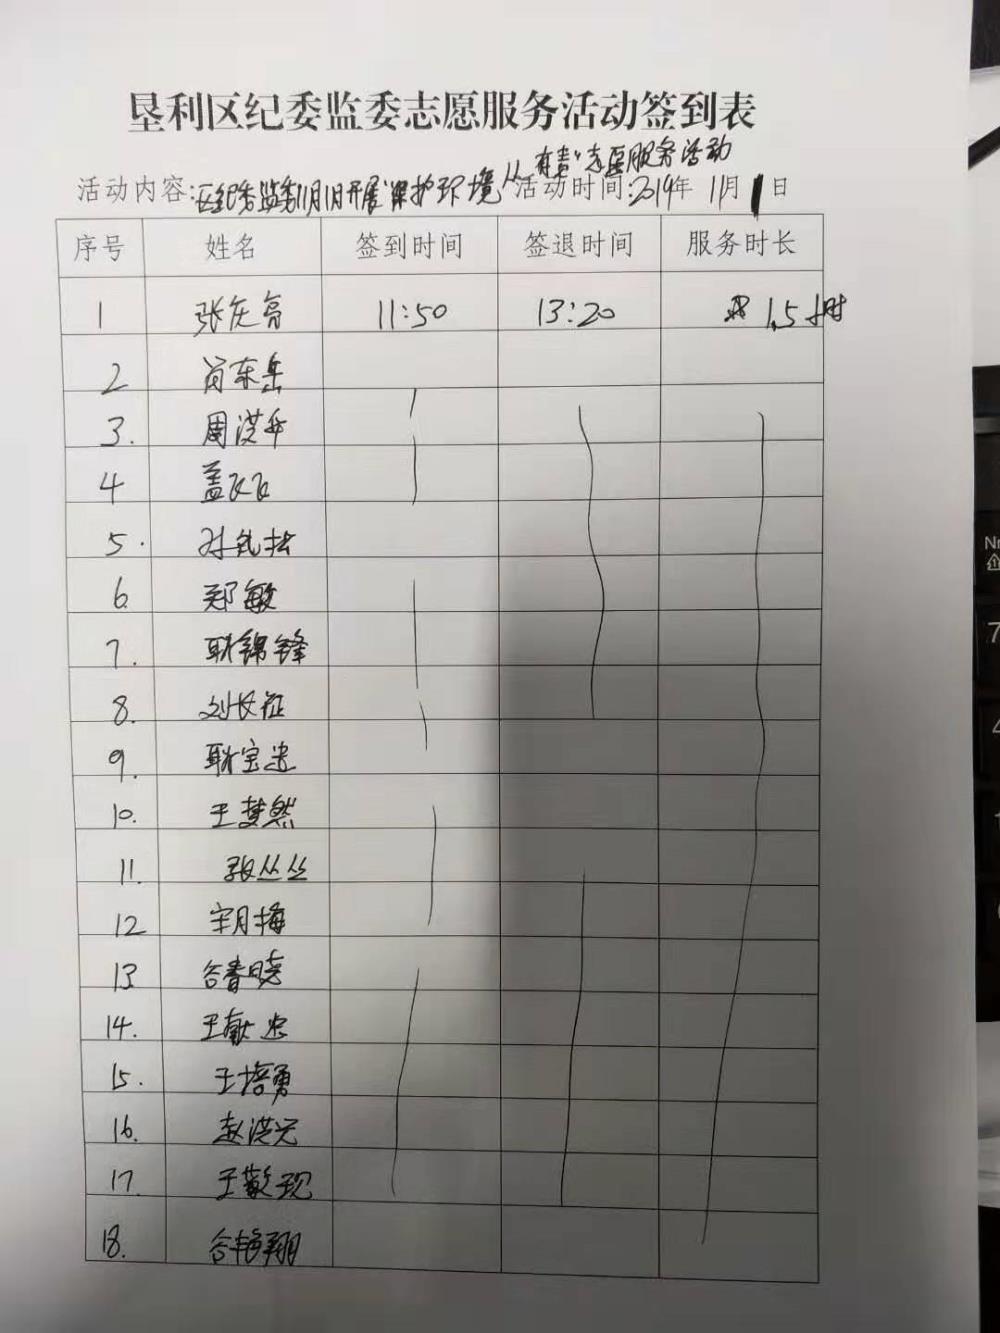 垦利区纪委监委志愿服务活动签到表
活动内容:区纪委监委11月1日开展"保护环境 从 有责"志愿服务活动
活动时间:2019年 11月 1日
序号 姓名 签到时间 签退时间 服务时长
1 张庆亮 11:50 13:20 1.5小时
2 尚东岳
3. 周洪升
4 盖飞飞
5.
6 郑敏
7. 耿锦锋
8. 刘长征
9. 耿宝忠
10. 王梦然
11. 张丛丛
12 宋月梅
13
14. 王献忠
15. 王培勇
16. 赵洪兴
17. 王
18.
Nu
7
4